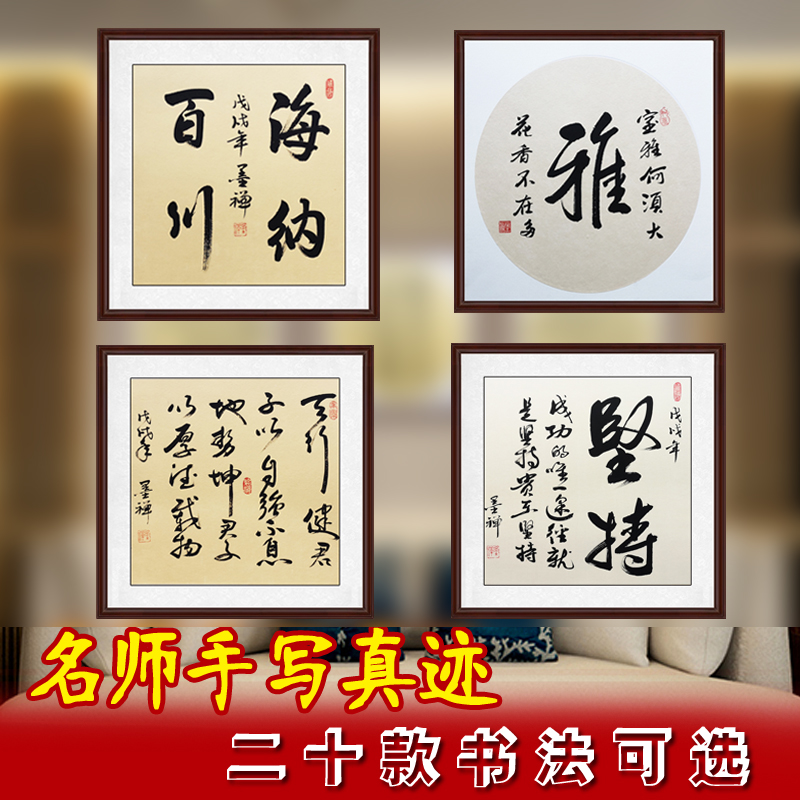 海纳
百川
戊戌年 墨禅
室雅何须大
雅
花香不在多
天行健君
子以自强不息
地势坤君子
以厚德载物
戊戌年 墨禅
戊戌年
坚持
成功的唯一途径就
是坚持贵在坚持
墨禅
名师手写真迹
二十款书法可选